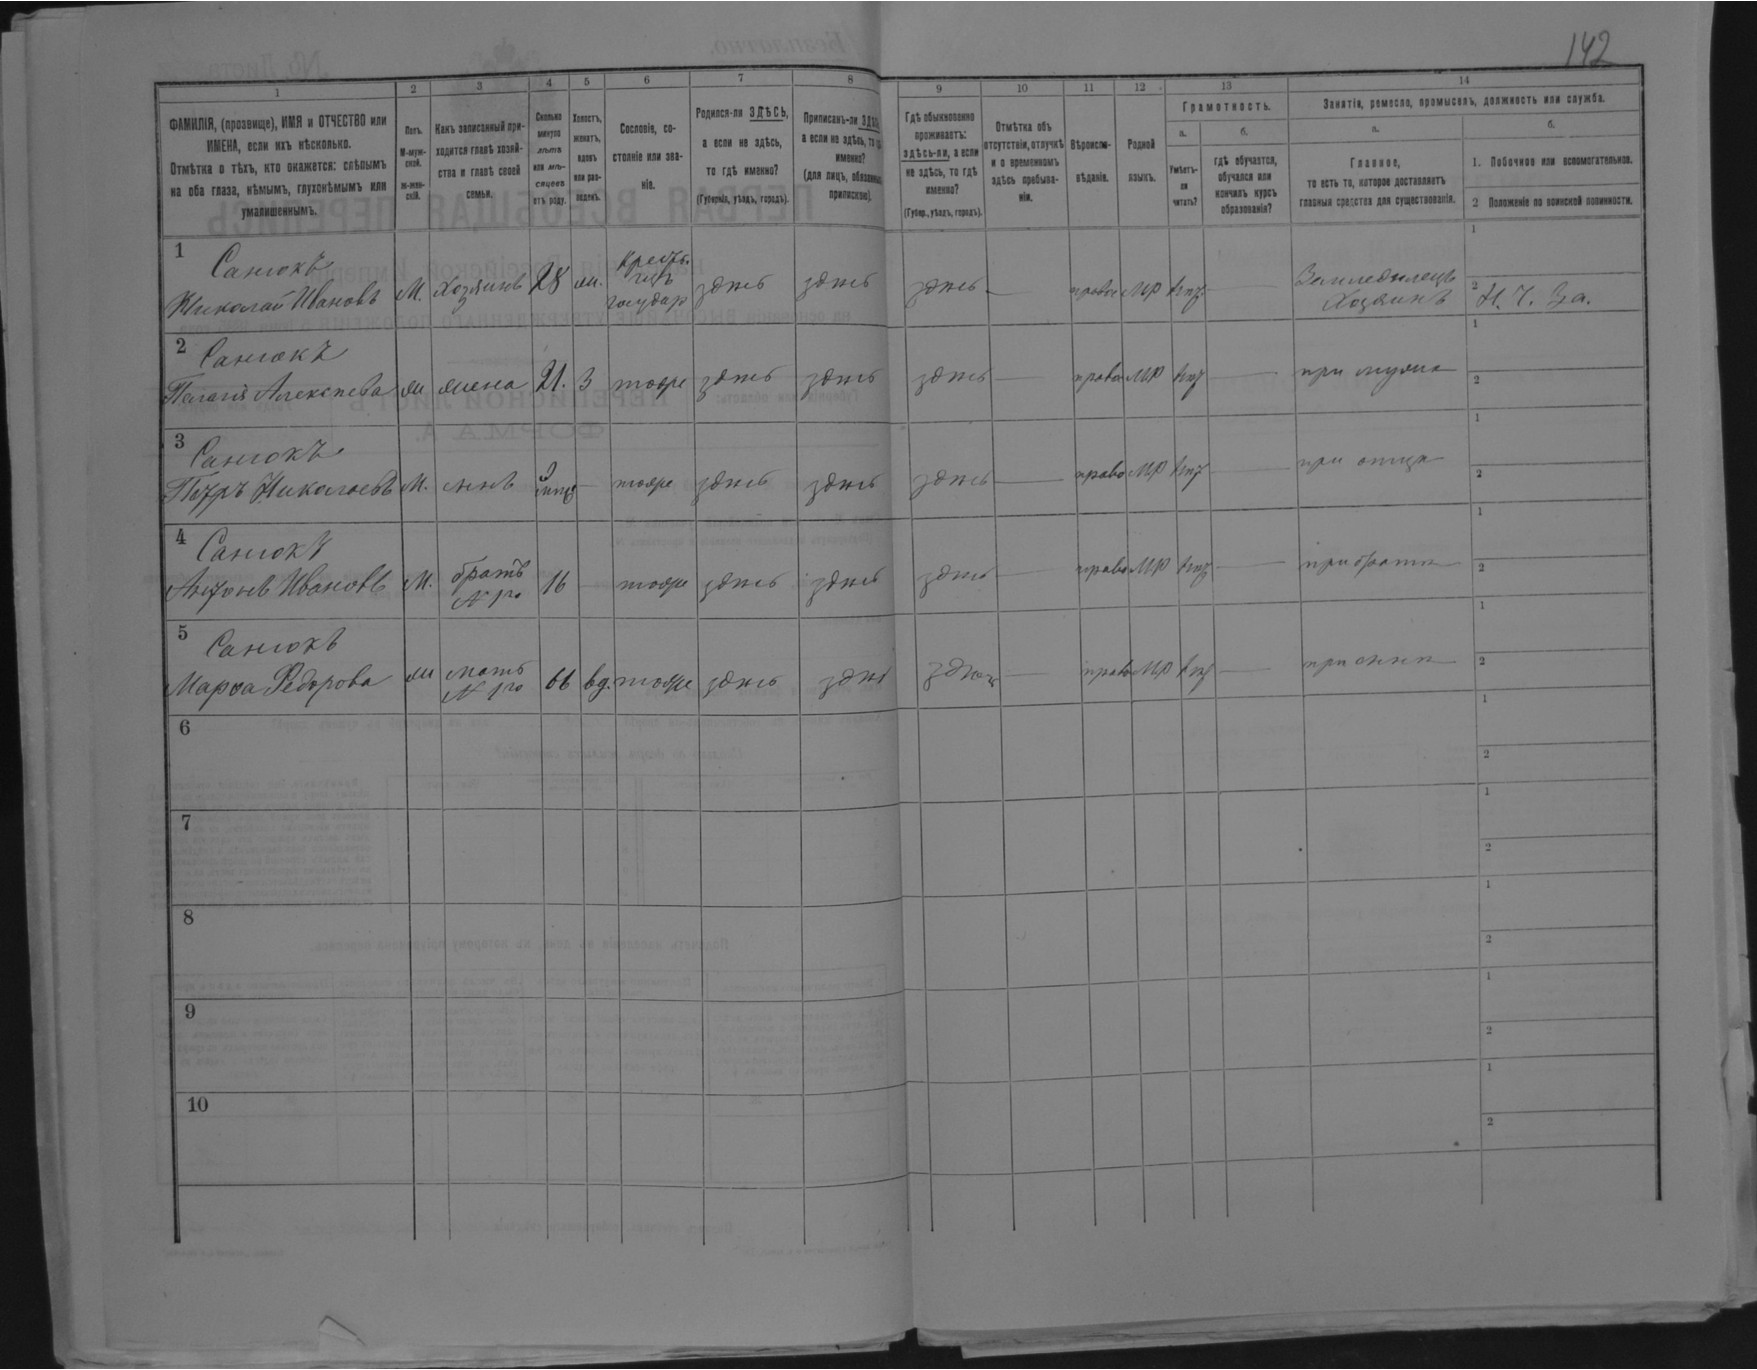 142
1
2
3
4
5
6
7
8
9
10
11
12
13
14
ФАМИЛІЯ, (прозвище), ИМЯ и ОТЧЕСТВО или
ИМЕНА, если ихъ нѣсколько.
Отмѣтка о тѣхъ, кто окажется: слѣпымъ
на оба глаза, нѣмымъ, глухонѣмымъ или
умалишеннымъ.
Полъ.
М-муж-
ской.
Ж-жен-
скій.
Какъ записанный при-
ходится главѣ хозяй-
ства и главѣ своей
семьи.
Сколько
минуло
лѣтъ
или мѣ-
сяцевъ
отъ роду.
Холостъ,
женатъ,
вдовъ
или раз-
веденъ.
Сословіе, со-
стояніе или зва-
ніе.
Родился-ли ЗДѢСЬ,
а если не здѣсь,
то гдѣ именно?
(Губернія, уѣздъ, городъ).
Приписанъ-ли
а если не здѣсь, то
именно?
(для лицъ, обязанныхъ
припискою).
Гдѣ обыкновенно
проживаетъ:
здѣсь-ли, а если
не здѣсь, то гдѣ
именно?
(Губер., уѣздъ, городъ).
Отмѣтка объ
отсутствіи, отлучкѣ
и о временномъ
здѣсь пребыва-
ніи.
Вѣроиспо-
вѣданіе.
Родной
языкъ.
Грамотность.
а.
Умѣетъ-
ли
читать?
б.
гдѣ обучается,
обучался или
кончилъ курсъ
образованія?
Занятія, ремесло, промыселъ, должность или служба.
а.
Главное,
то есть то, которое доставляетъ
главныя средства для существованія.
б.
1. Побочное или вспомогательное.
2 Положеніе по воинской повинности.
1
Санюкъ
Николай Ивановъ М. хозяинъ 28 крестъ. государ здѣсь здѣсь здѣсь — МР нѣт Земледѣлецъ
Хозяинъ
1
2
2
Санюкъ
Пелагія Алексѣева жена 21. 3 тоже здѣсь здѣсь здѣсь — право МР нѣт — при мужѣ
1
2
3
Санюкъ
Петръ Николаевъ М. сынъ — тоже здѣсь здѣсь здѣсь — право МР нѣт — при отцѣ
1
2
4
Санюкъ
Антонъ Ивановъ М. братъ 16 — тоже здѣсь здѣсь здѣсь — право МР нѣт — при братѣ
1
2
5
Санюкъ
Марѳа Ѳедорова мать 66 вд. тоже здѣсь здѣсь здѣсь — право МР нѣт — при сынѣ
1
2
6
1
2
7
1
2
8
1
2
9
1
2
10
1
2